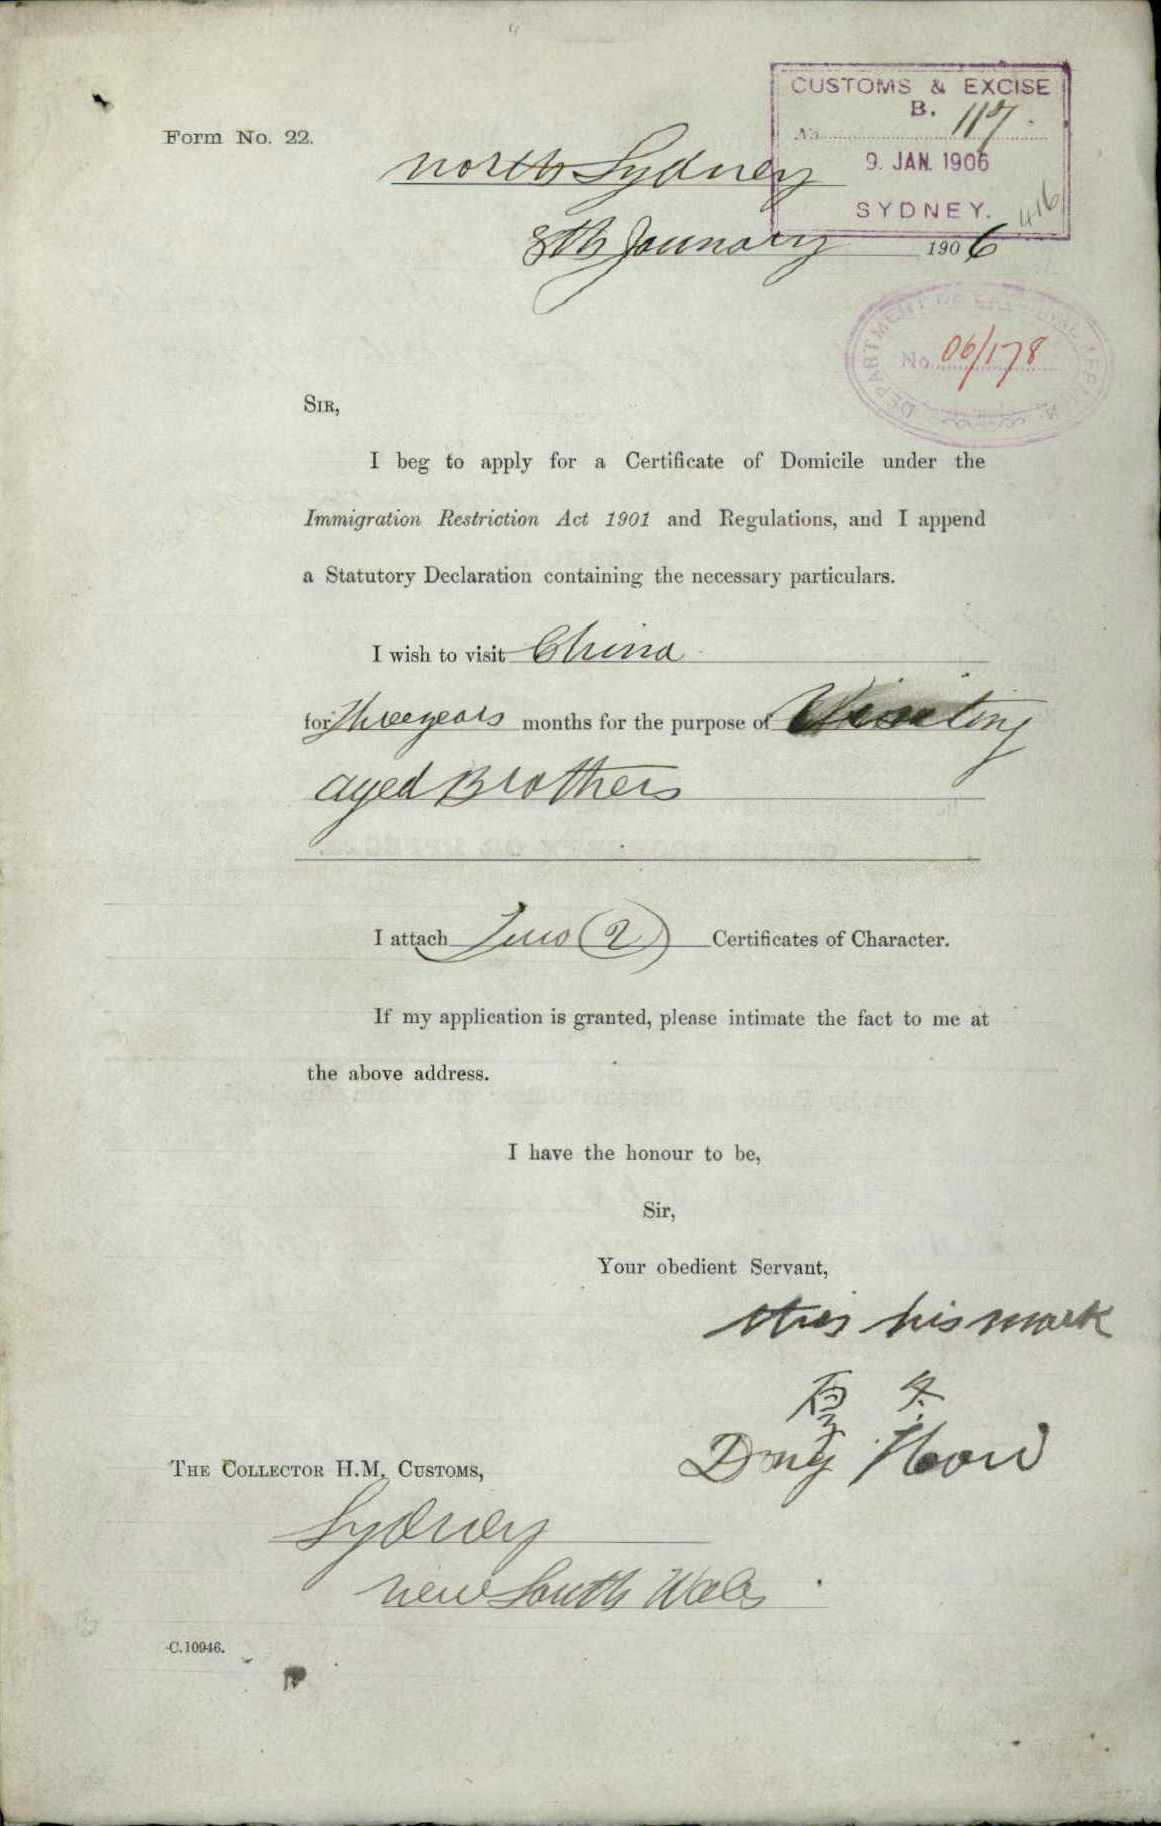 CUSTOMS & EXCISE
B.
No 117.
9. JAN. 1906
SYDNEY.
416
Form No. 22.
North Sydney
8th January 1906
DEPARTMENT OF EXTERNAL AFFAIRS
No. 06/178
SIR,
I beg to apply for a Certificate of Domicile under the
Immigration Restriction Act 1901 and Regulations, and I append
a Statutory Declaration containing the necessary particulars.
I wish to visit China
for Three years months for the purpose of Visiting
aged Brothers
I attach Two (2) Certificates of Character.
If my application is granted, please intimate the fact to me at
the above address.
I have the honour to be,
Sir,
Your obedient Servant,
this his mark
Dong How
THE COLLECTOR H.M. CUSTOMS,
Sydney
New South Wales
C.10946.